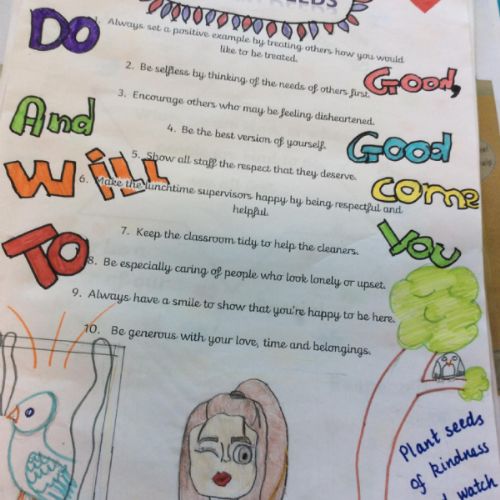 DO
1. Always set a positive example by treating others how you would
like to be treated.
Good,
2. Be selfless by thinking of the needs of others first.
3. Encourage others who may be feeling disheartened.
And
4. Be the best version of yourself.
Good
5. Show all staff the respect that they deserve.
Will
come
6. Make the lunchtime supervisors happy by being respectful and
helpful.
To
You
7. Keep the classroom tidy to help the cleaners.
8. Be especially caring of people who look lonely or upset.
9. Always have a smile to show that you're happy to be here.
10. Be generous with your love, time and belongings.
Plant seeds
of kindness
watch